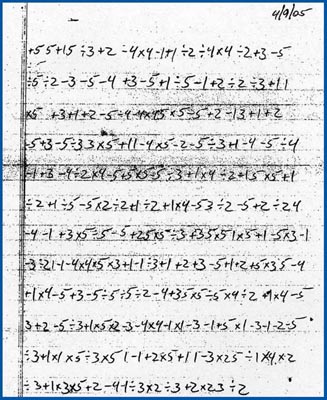 4/9/05
+55+15÷3+2-4x4-1+1÷2÷4x4÷2+3-5
÷5÷2-3-5-4+3-5+1÷5-1+2÷2÷3+11
x5+3+1+2-5÷4 x5÷5+2-13+1+2
-5+3-5÷33x5+11-4x5-2-5÷3+1-4-5÷4
-1+3-4÷2x4 ÷3+1x4÷2+15x5+1
÷2+1÷5-5x2÷2+1÷2+1x4-53÷2-5+2÷24
-4-1+3x5÷5-5+25x5÷3+35x51x5+1-5x3-1
-3÷21-1-4x4+5x3+1-1÷3+1+2+3-5+1+2+5x35-4
+1x4-5+3-5÷5÷5÷2-4+35x5÷5x4÷2 x4-5
3+2-5÷3+1x5 -3-4x4-1x1-3-1+5x1-3-1-2-5
÷3+1x1x5÷3x51-1+2x5+11-3x25÷1x4x2
÷3+1x3x5+2-4-1÷3x2÷3+2x23÷2